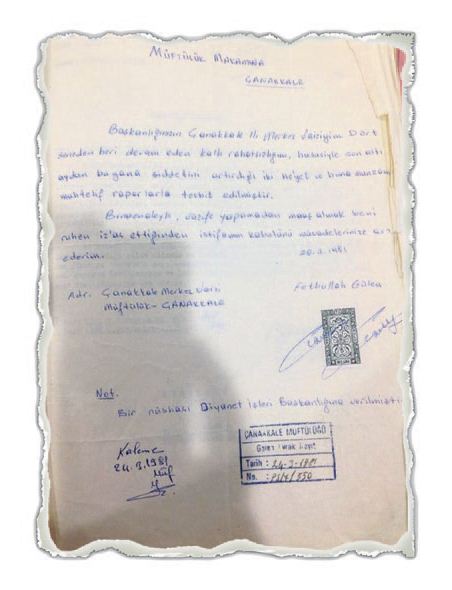 MÜFTÜLÜK MAKAMINA
ÇANAKKALE
Başkanlığınızın Çanakkale İli Merkez Vaiziyim. Dört
seneden beri devam eden kalb rahatsızlığım, hususiyle son altı
aydan bu yana şiddetini artırdığı iki hey'et ve buna munzam
muhtelif raporlarla tesbit edilmiştir.
Binaenaleyh, vazife yapamadan maaş almak beni
ruhen iz'ac ettiğinden istifamın kabulünü müsadelerinize arz
ederim. 20.3.1981
Adr. Çanakkale Merkez Vaizi Fethullah Gülen
Müftülük - ÇANAKKALE
Not.
Bir nüshası Diyanet İşleri Başkanlığına verilmiştir.
Kaleme
24.3.1981
Müf
ÇANAKKALE MÜFTÜLÜĞÜ
Gelen Evrak Kayıt
Tarih : 24-3-1981
No. :